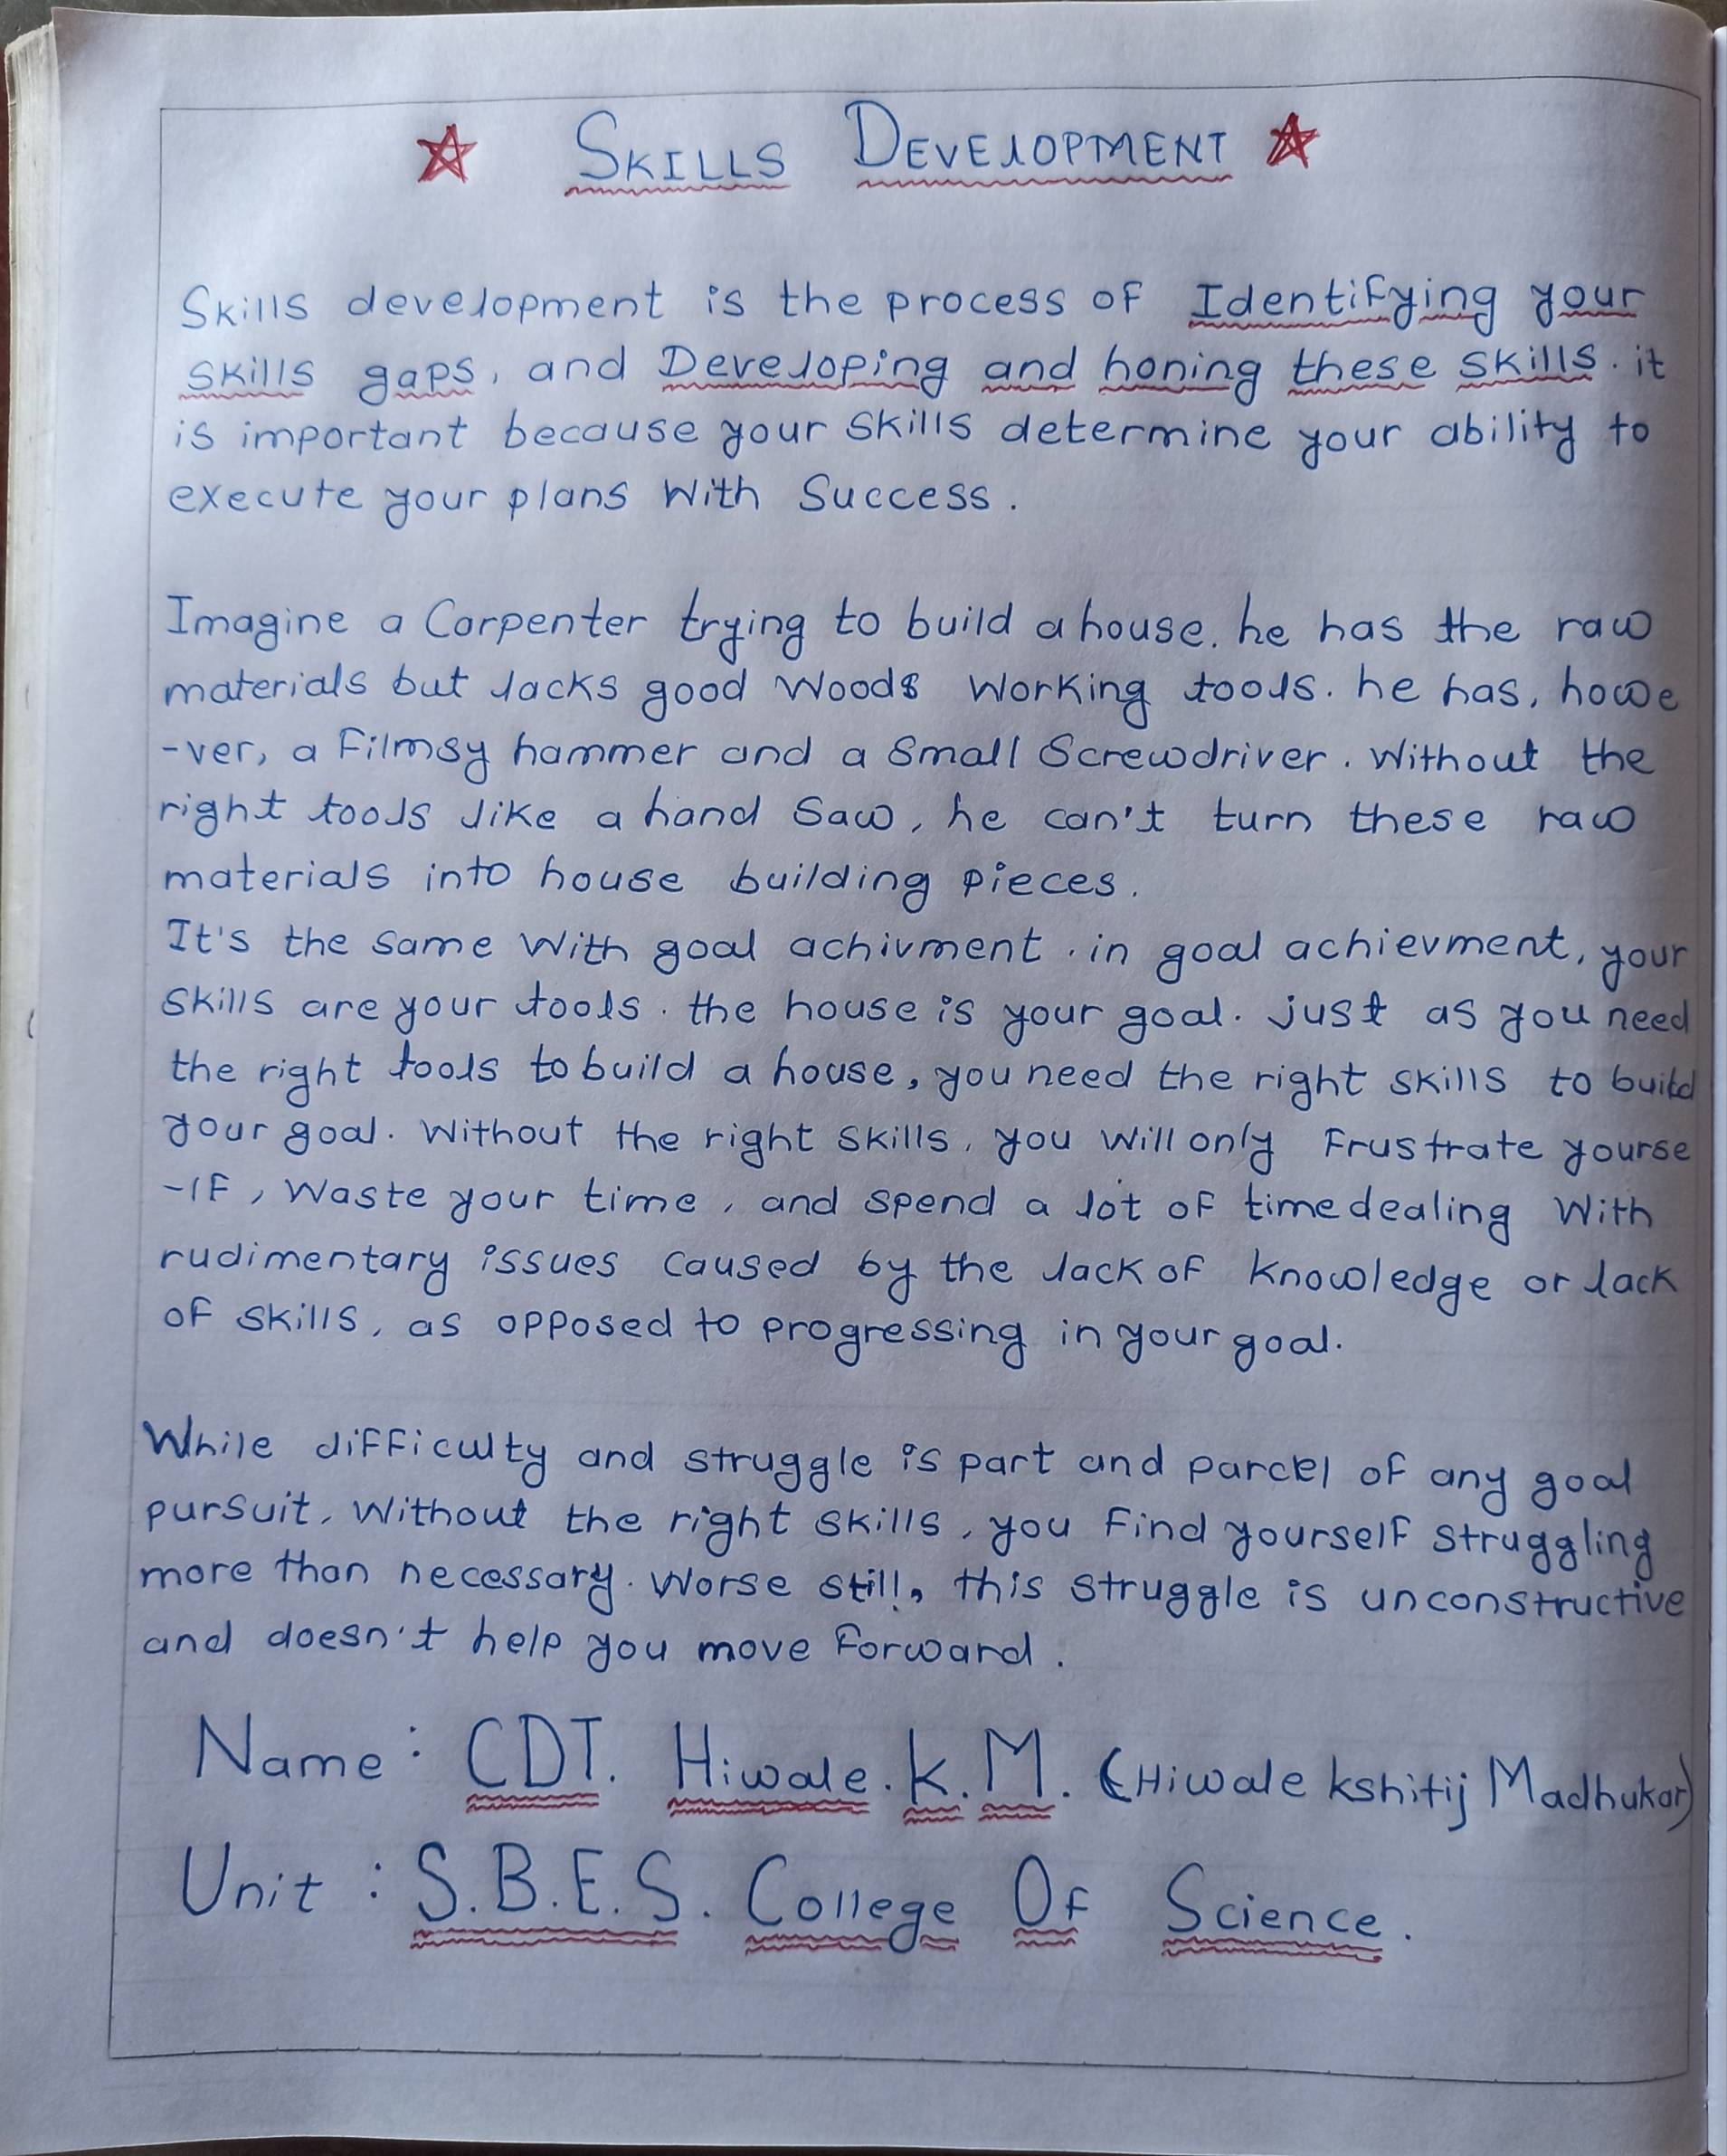 SKILLS DEVELOPMENT
Skills development is the process of Identifying your
skills gaps, and Developing and honing these skills. it
is important because your skills determine your ability to
execute your plans With Success.
Imagine a Carpenter trying to build a house. he has the raw
materials but lacks good Woods Working tools. he has, howe
-ver, a Filmsy hammer and a Small Screwdriver. Without the
right tools like a hand Saw, he can't turn these raw
materials into house building pieces.
It's the same With goal achivment. in goal achievment, your
Skills are your tools. the house is your goal. just as you need
the right tools to build a house, you need the right skills to build
your goal. Without the right skills, you will only Frustrate yourse
-lF, Waste your time, and spend a lot of time dealing With
rudimentary issues caused by the lack of knowledge or lack
of skills, as opposed to progressing in your goal.
While difficulty and struggle is part and parcel of any goal
pursuit, Without the right skills, you find yourself struggling
more than necessary. Worse still, this struggle is unconstructive
and doesn't help you move forward.
Name: CDT. Hiwale. K. M. (Hiwale kshitij Madhukar)
Unit: S.B.E.S. College Of Science.